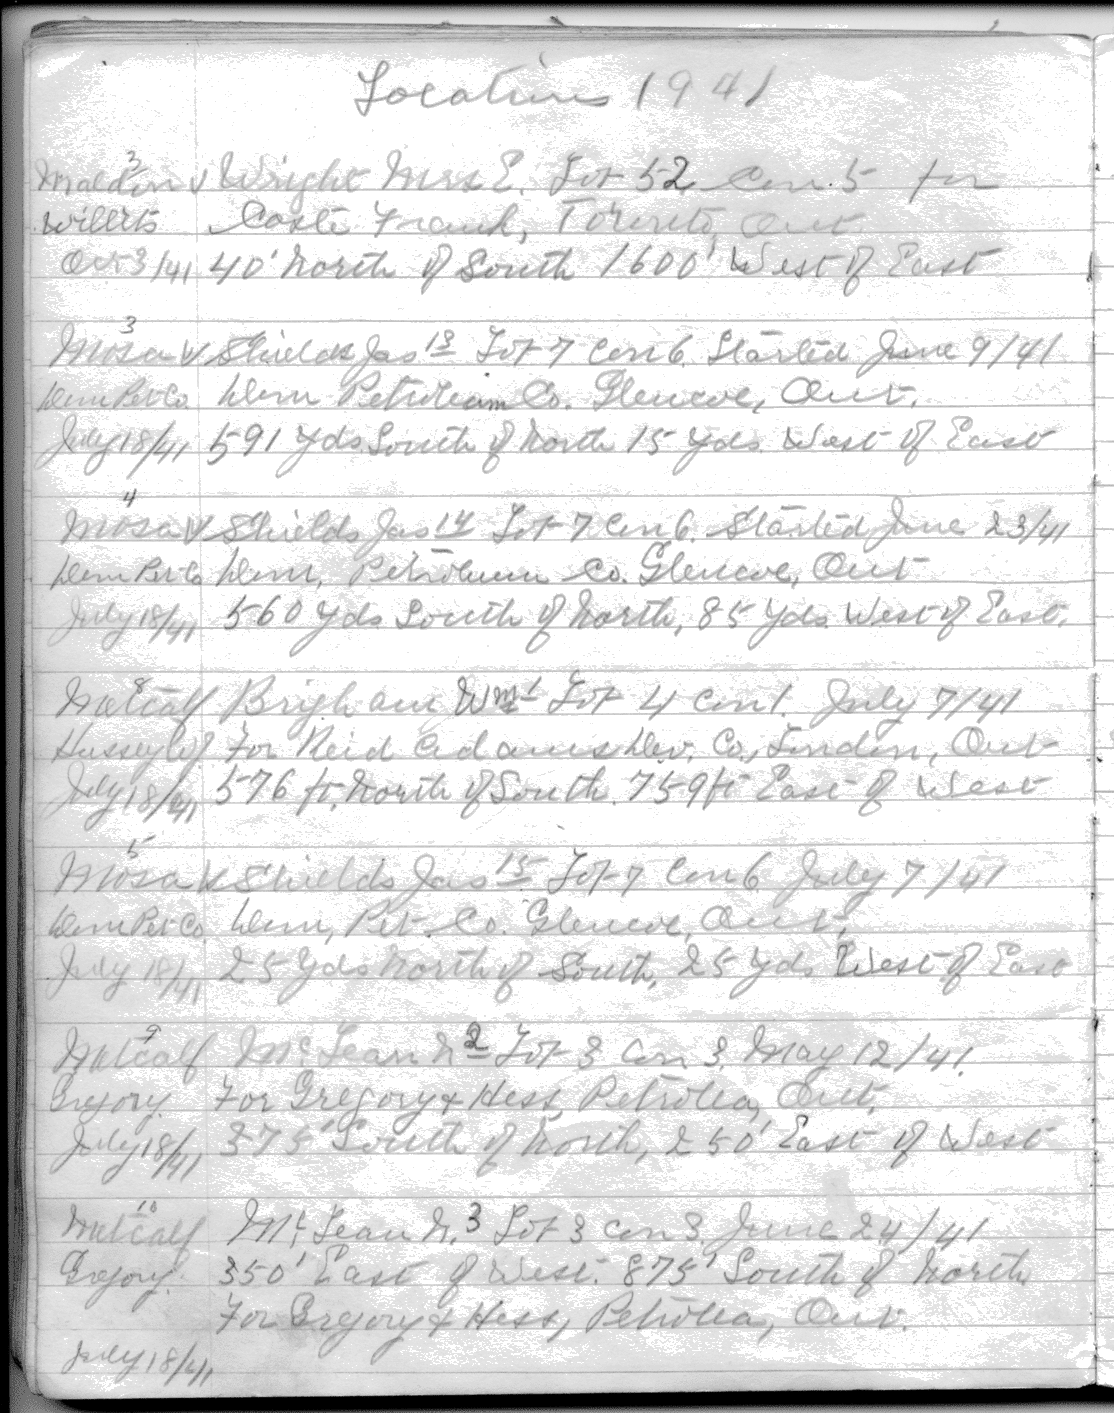 Locations 1941
3
Maldon ✓ Wright Mrs E. Lot 52 Con. 5 for
Willits Coste Frank, Toronto, Ont.
Oct 3/41 40' North of South 1600' West of East
3
Mosa ✓ Shields Jas 13 Lot 7 Con 6. Started June 9/41
Dom Pet Co. Dom Petroleum Co. Glencoe, Ont.
July 18/41 591 Yds South of North 15 Yds. West of East
4
Mosa ✓ Shields Jas 14 Lot 7 Con 6. Started June 23/41
Dom Pet Co Dom, Petroleum Co. Glencoe, Ont
July 18/41 560 Yds South of North, 85 Yds. West of East.
8
Metcalf Brigham Wm 1 Lot 4 Con 1. July 7/41
For Reid Adams Dev. Co., London, Ont
July 18/41 576 ft. North of South. 759 ft East of West
5
Mosa ✓ Shields Jas 15 Lot 7 Con 6 July 7/41
Dom Pet Co. Dom, Pet. Co. Glencoe, Ont.
July 18/41 25 Yds North of South, 25 Yds West of East
9
Metcalf McLean N 2 Lot 3 Con 3. May 12/41.
Gregory. For Gregory & Hess, Petrolea, Ont.
July 18/41 375' South of North, 250' East of West
10
Metcalf McLean N. 3 Lot 3 Con 3. June 24/41
Gregory. 350' East of West. 875' South of North
For Gregory & Hess, Petrolea, Ont.
July 18/41